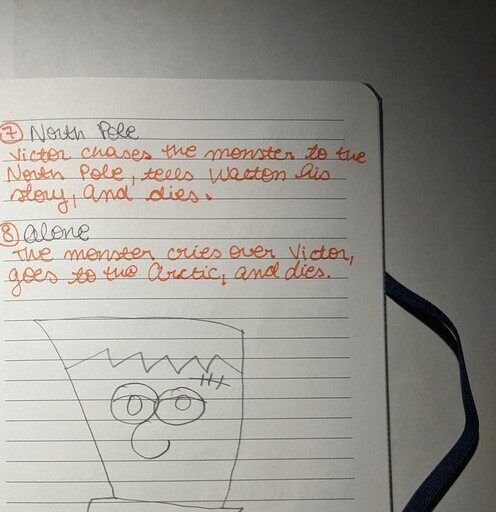 7 North Pole
Victor chases the monster to the
North Pole, tells Walton his
story, and dies.
8 Alone
The monster cries over Victor,
goes to the Arctic, and dies.